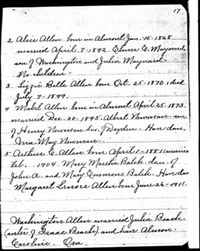 17
2. Alice Allen born in Almont Jan. 15. 1868
married April. 7. 1892. Elmer E. Maynard
son of Washington and Julia Maynard.
No children
3. Lizzie Belle Allen born Oct. 25. 1870 died
July 7. 1899.
4 Mabel Allen born in Almont April 25. 1873.
married Dec. 30. 1895. Albert Newman son
of Henry Newman of Dryden. Have dau.
Iva May Newman.
5. Arthur E. Allen born April 1881. married
Feb. 1904. Mary Martha Balch. dau. of
John A. and Mary Emmons Balch. Have dau
Margaret Lenore Allen born June 26. 1911.
Washington Allen married Julia Beach
(sister of Isaac Beach) and have Alanson
Caroline. Asa